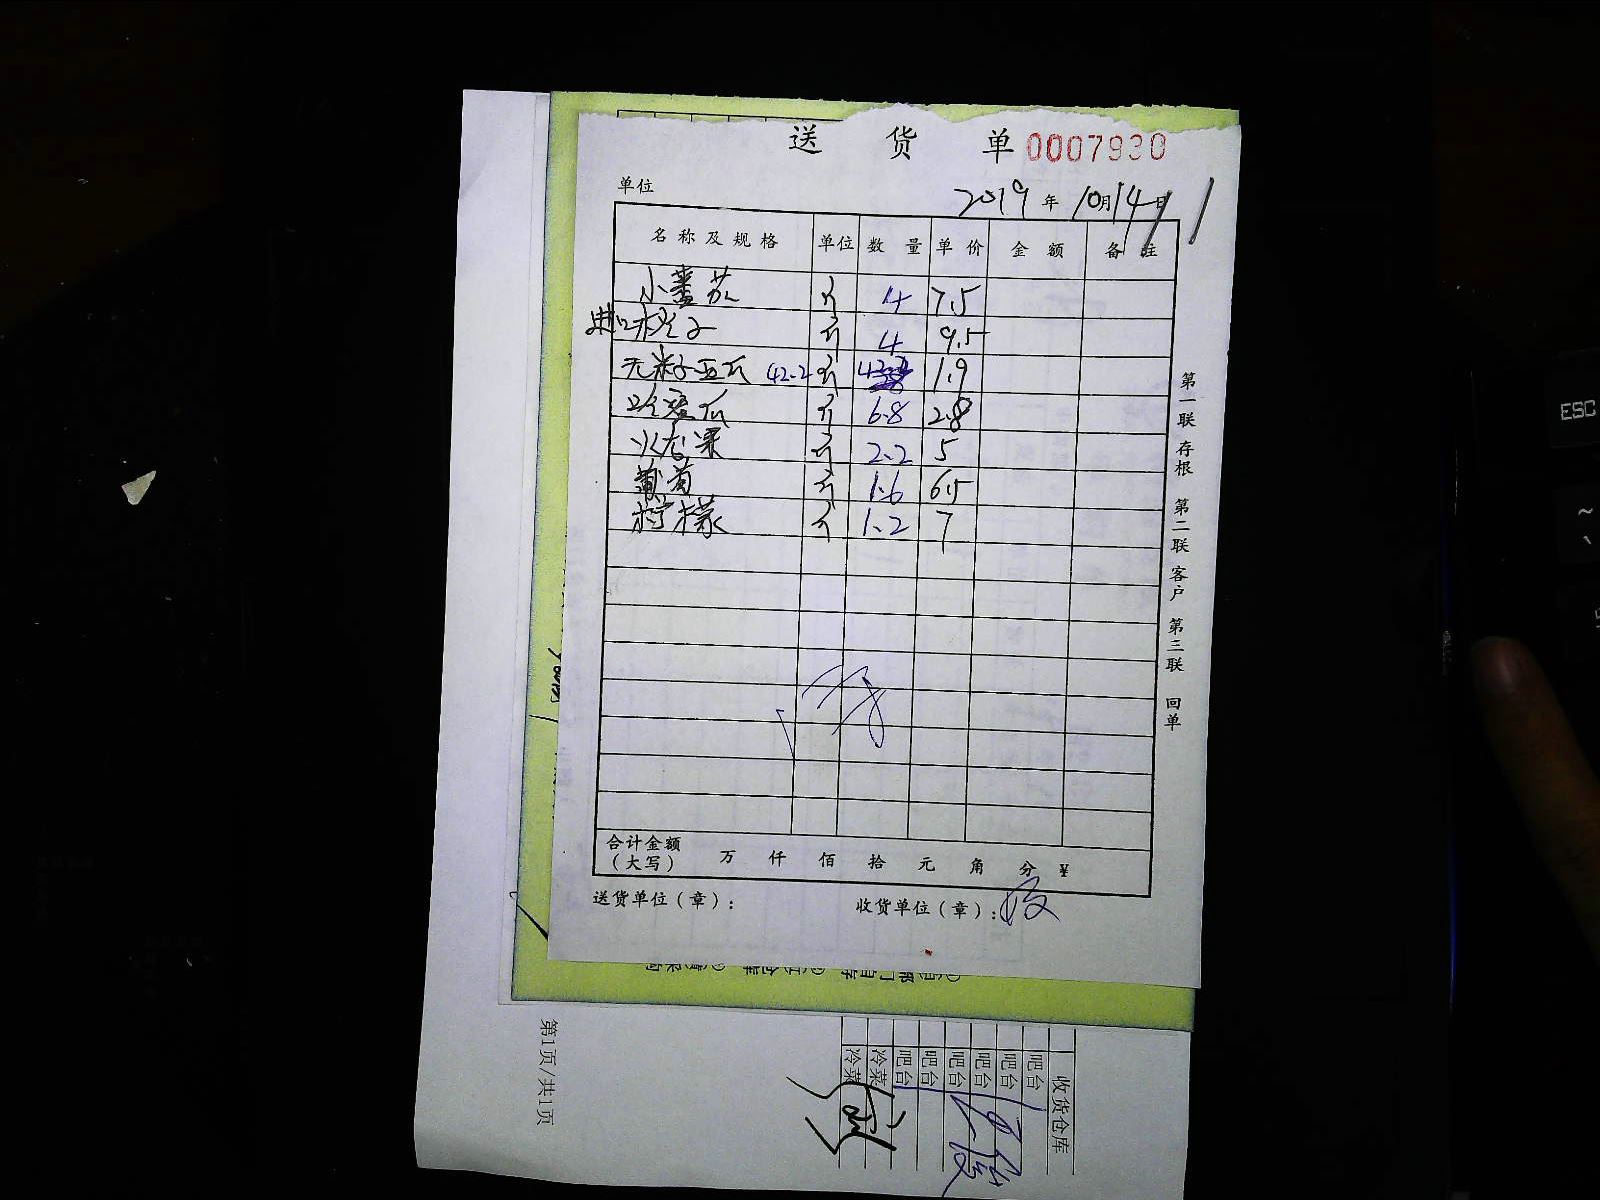 送 货 单 0007930
单位
2019 年 10 月 14 日
名称及规格 单位 数量 单价 金额 备注
小番茄 斤 4 7.5
进口橙子 斤 4 9.5
无籽西瓜 42.2 斤 1.9
斤 6.8 2.8
火龙果 斤 2.2 5
葡萄 斤 1.6 6.5
柠檬 斤 1.2 7
合计金额
(大写) 万 仟 佰 拾 元 角 分 ¥
送货单位(章): 收货单位(章):
第一联 存根 第二联 客户 第三联 回单
收货仓库
吧台
吧台
吧台
吧台
吧台
吧台
冷菜
冷菜
第1页/共1页
ESC